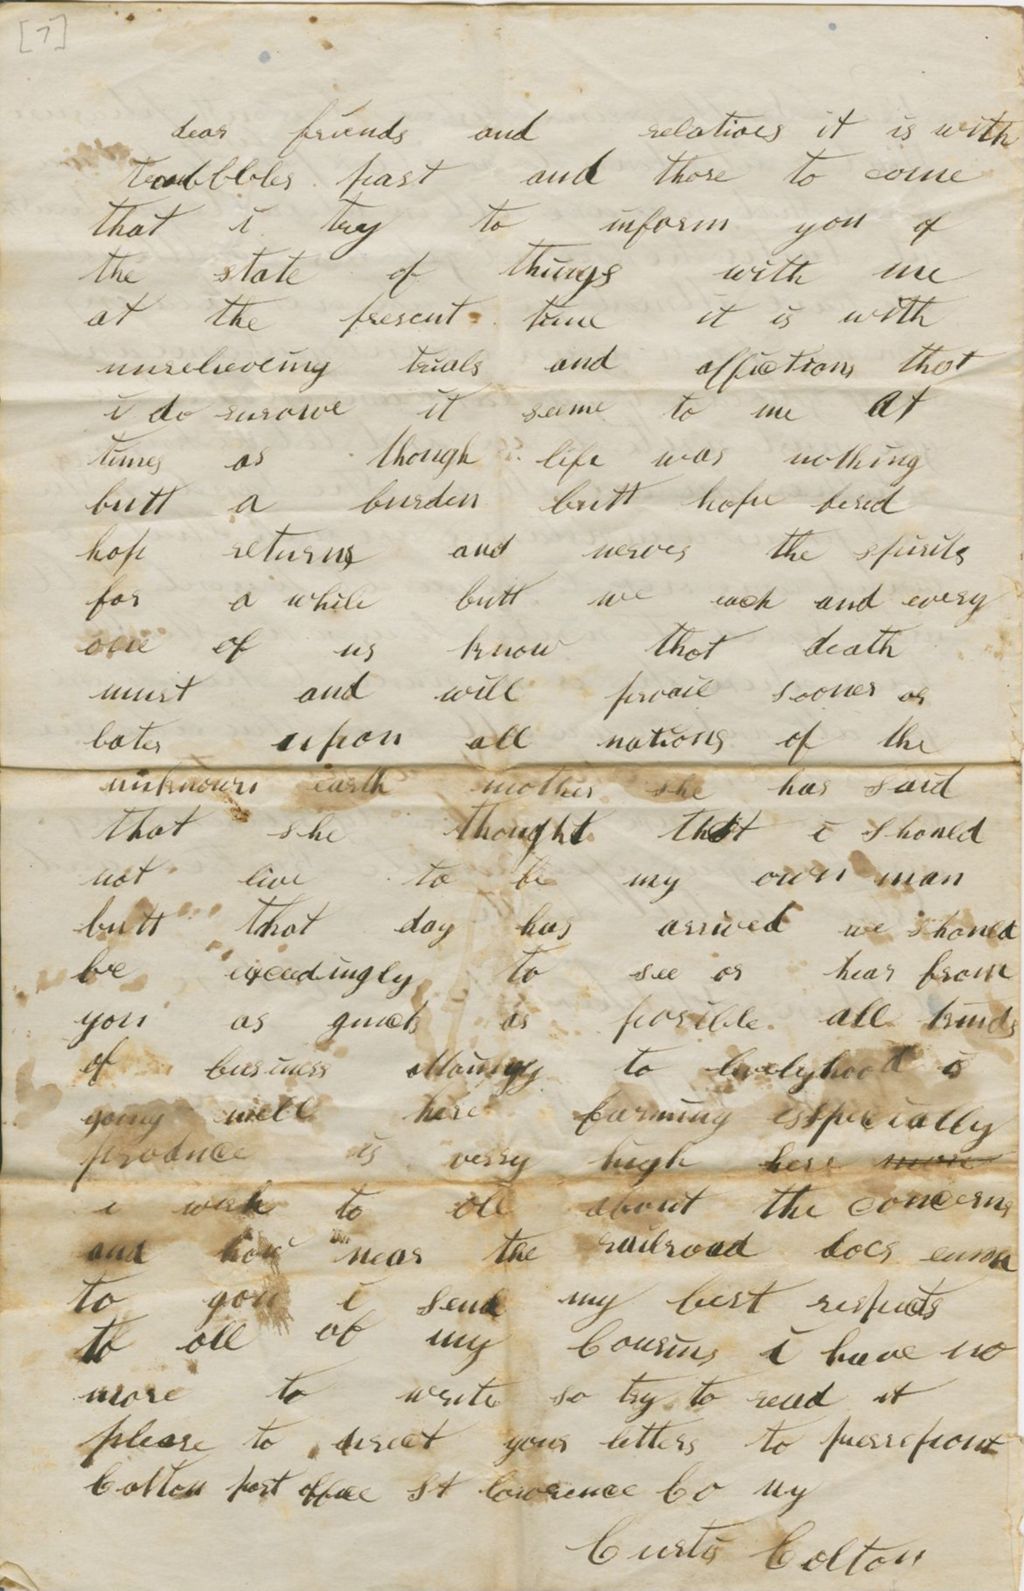 [7]
dear friends and relatives it is with
trubbbles past and those to come
that i try to inform you of
the state of things with me
at the present time it is with
unrelieveing trials and affictions that
i do survive it seeme to me At
times as though life was nothing
butt a burden butt hope
hope returns and nerves the spirits
for a while butt we each and every
one of us know that death
must and will prvail sooner or
later upon all nations of the
unknown earth mother she has said
that she thought that i shoned
not live to be my own man
butt that day has arrived we shoned
be exceedingly to see or hear from
you as quick as posible all kinds
of business to livelyhood is
going well here farming esspecially
produce is verry high here more
i wish to all about the concerns
and how near the railroad does
to you i send my best respects
to all of my Cousins i have no
more to write so try to read it
please to direct your letters to pierrepont
Colton post office St lawrence Co ny
Curtis Colton